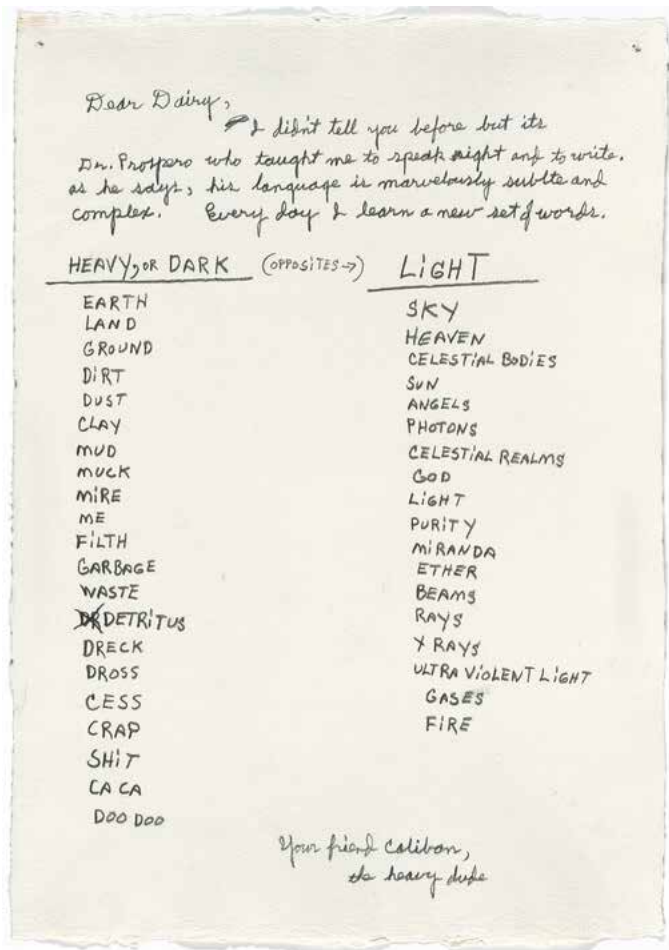 Dear Dairy,
I didn't tell you before but its
Dr. Prospero who taught me to speak right and to write.
as he says, his language is marvelously sublte and
complex. Every day I learn a new set of words.
HEAVY, OR DARK (OPPOSITES→) LIGHT
EARTH
LAND
GROUND
DIRT
DUST
CLAY
MUD
MUCK
MIRE
ME
FILTH
GARBAGE
WASTE
DETRITUS
DRECK
DROSS
CESS
CRAP
SHIT
CA CA
DOO DOO
SKY
HEAVEN
CELESTIAL BODIES
SUN
ANGELS
PHOTONS
CELESTIAL REALMS
GOD
LIGHT
PURITY
MIRANDA
ETHER
BEAMS
RAYS
X RAYS
ULTRA VIOLENT LIGHT
GASES
FIRE
Your friend Caliban,
the heavy dude